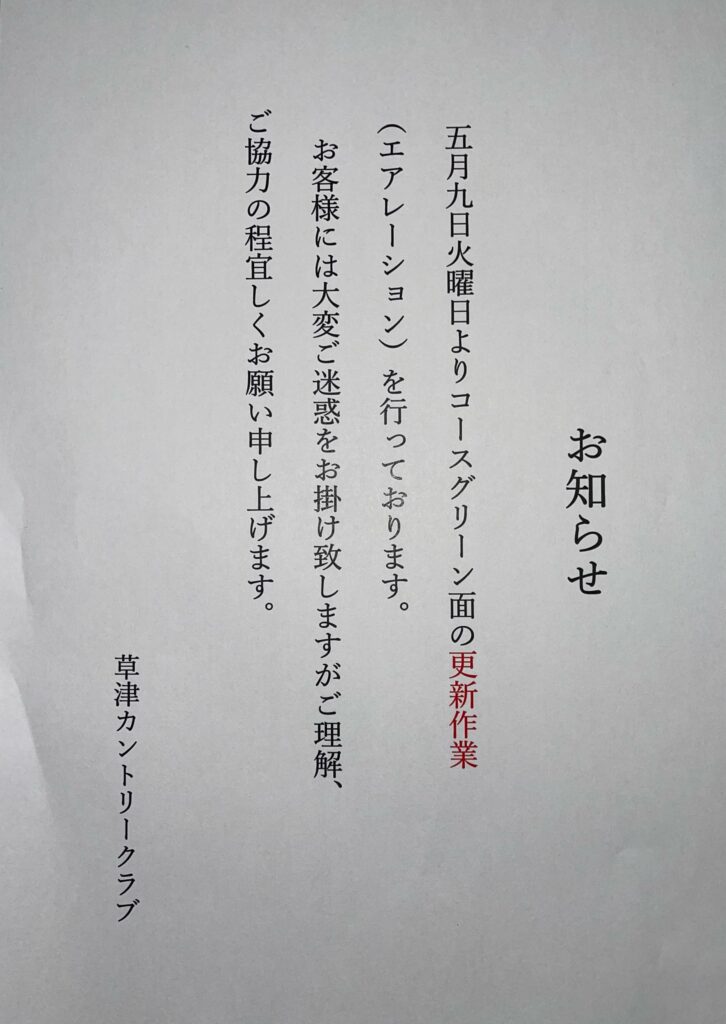 お知らせ
五月九日火曜日よりコースグリーン面の更新作業
（エアレーション）を行っております。
お客様には大変ご迷惑をお掛け致しますがご理解、
ご協力の程宜しくお願い申し上げます。
草津カントリークラブ